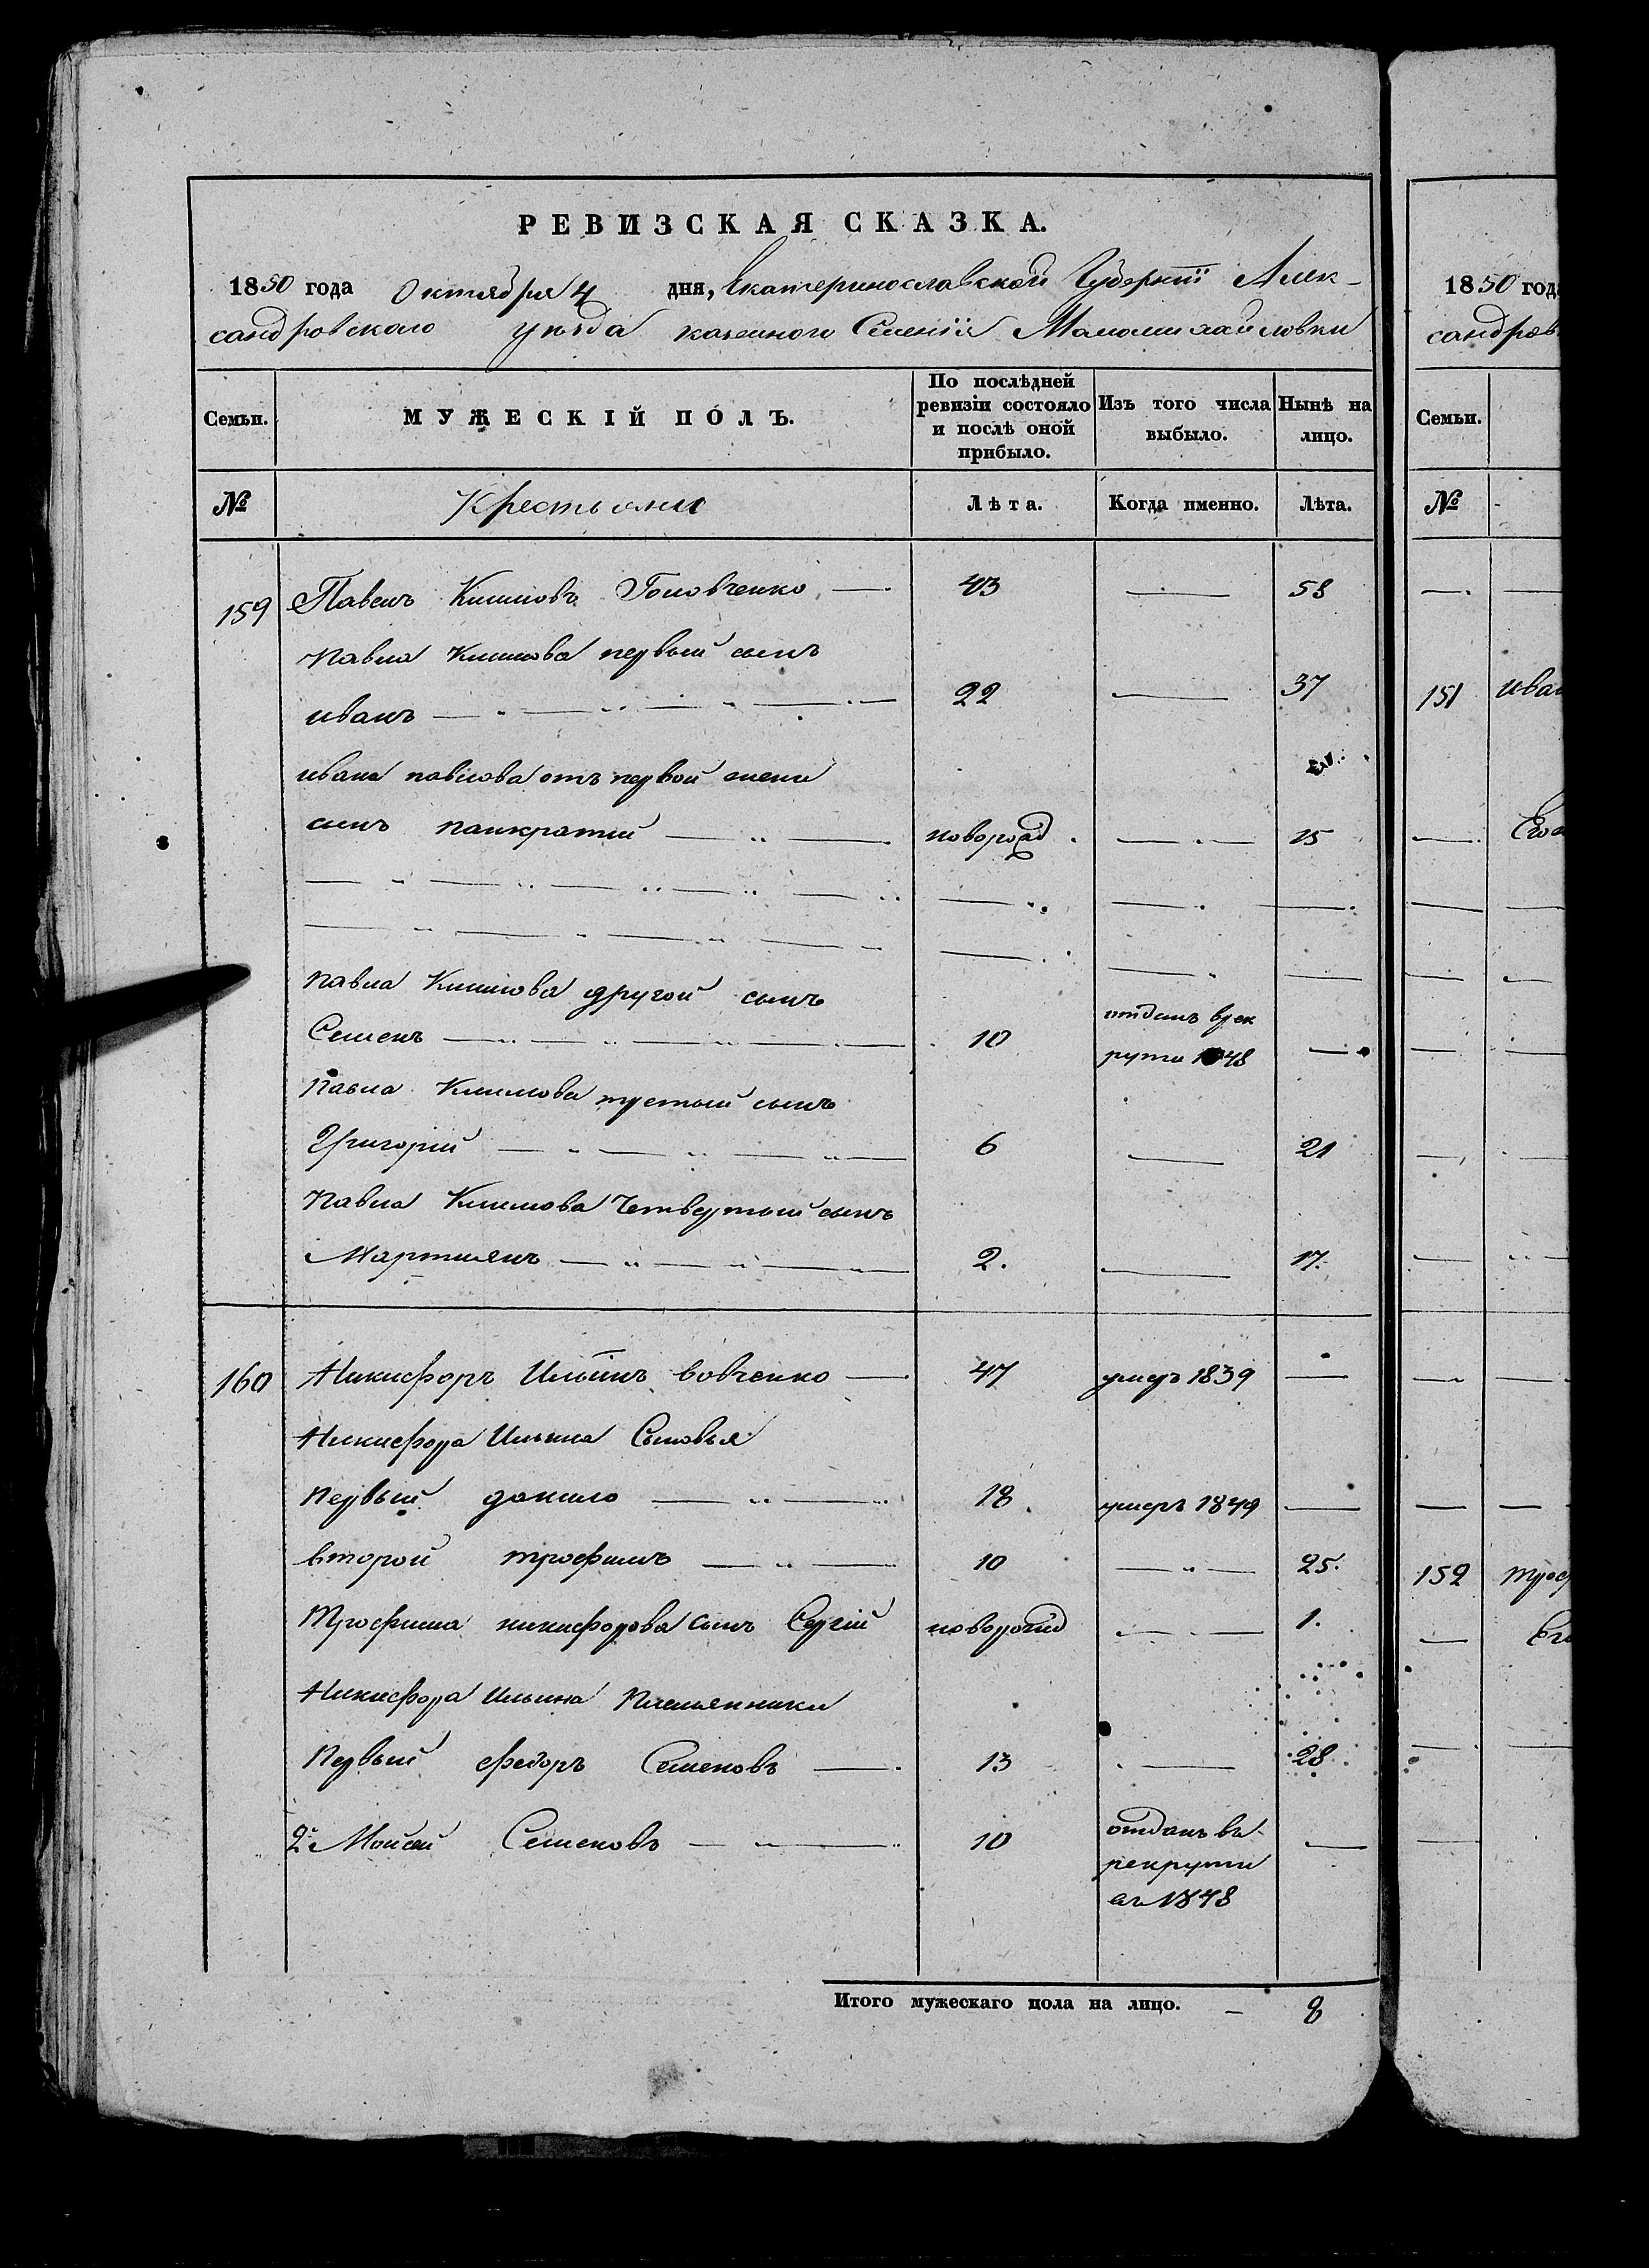 РЕВИЗСКАЯ СКАЗКА.
1850 года Октября 4 дня, Екатеринославской Губерніи Алек-
сандровскаго уѣзда казеннаго Селенія Маломихайловки
Семьи. МУЖЕСКІЙ ПОЛЪ. По послѣдней ревизіи состояло и послѣ оной прибыло. Изъ того числа выбыло. Нынѣ на лицо.
№ Крестьяни Лѣта. Когда именно. Лѣта.
159 Павелъ Климовъ Головченко — 43 — 58
Павла Климова первый сынъ
иванъ — 22 — 37
ивана павлова отъ первой жени
сынъ панкратий — новорожд. — 15
Павла Климова другой сынъ
Семенъ — 10 отданъ врек
рути 1848 —
Павла Климова третьий сынъ
Григорій — 6 — 21
Павла Климова Четвертый сынъ
Мартиянъ — 2. — 17.
160 Никифоръ Ильинъ вовченко — 47 умеръ 1839 —
Никифора Ильина Сыновья
Первый данило — 18. умеръ 1849 —
второй трофимъ — 10 — 25.
Трофима никифорова сынъ Сергій новорожд — 1.
Никифора Ильина Племянники
Первый федоръ Семеновъ — 13 — 28
2й Мойсей Семеновъ — 10 отданъ въ
рекрути
въ 1848 —
Итого мужескаго пола на лицо. — 8
1850 года
сандров
Семьи.
№
151 иван
152 троф